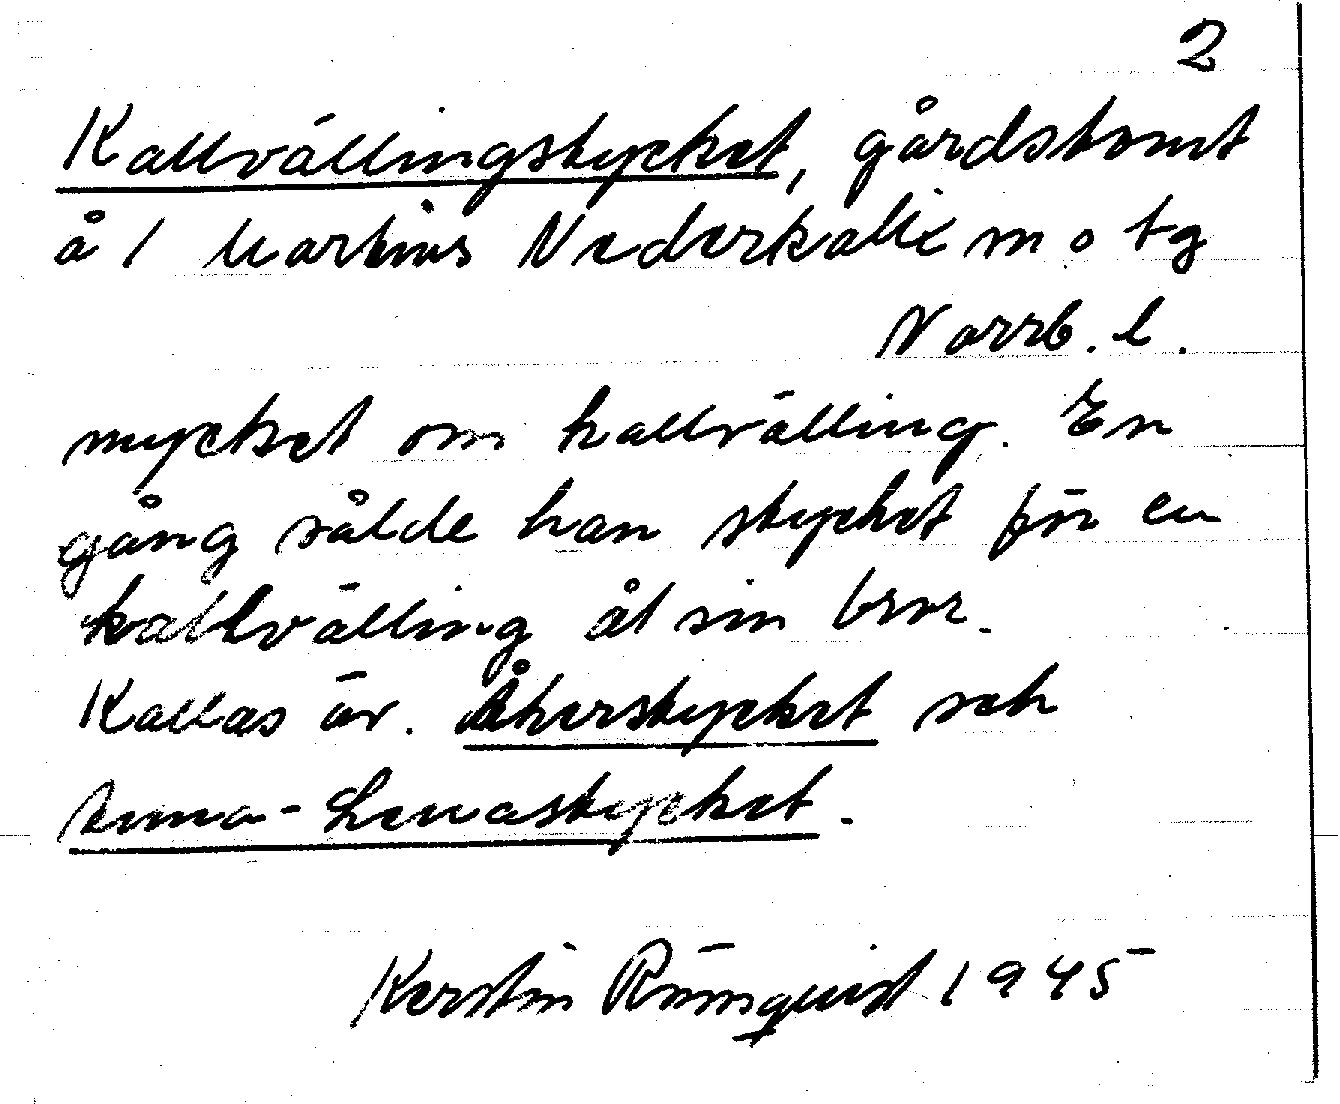 2
Kallvällingstycket, gårdstomt
å 1 Martins Nederkalix m o tg
Norrb. l.
mycket om kallvälling. En
gång sålde han stycket för en
kallvälling åt sin bror.
Kallas äv. Åkerstycket och
Anna-Lenastycket.
Kerstin Rönnquist 1945